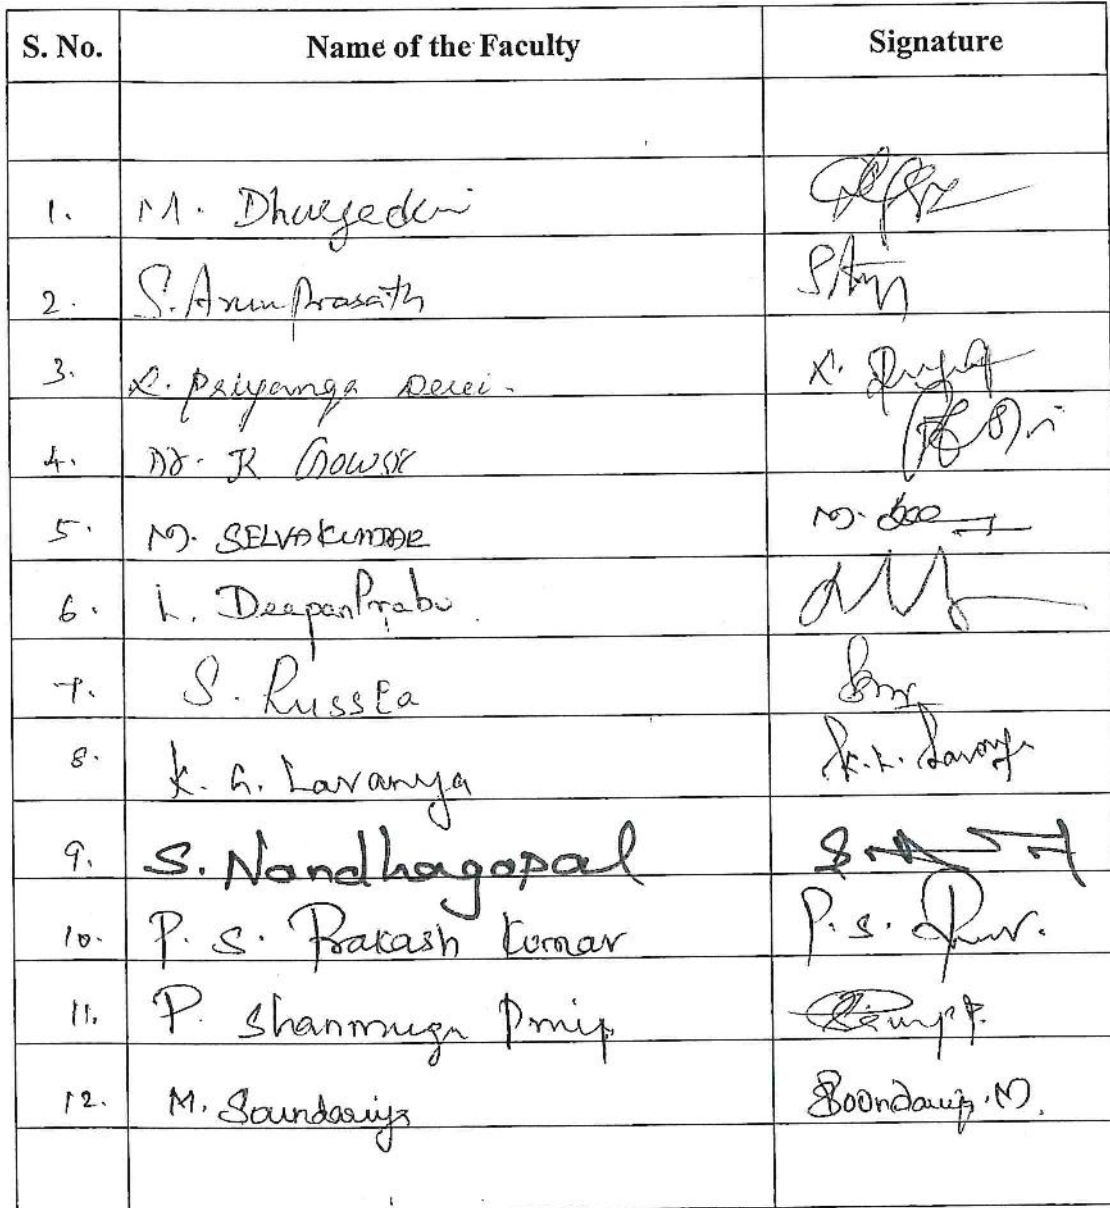 S. No. Name of the Faculty Signature
1. M.
2. S. Arun Prasath
3. Priyanga Devi.
4. Dr. K Gowsic
5. M. SELVAKUMAR M.
6. L. DeepanPrabu
7. S. Russia
8. K. G. Lavanya K. L. Lavanya
9. S. Nandhagopal S.
10. P. S. Prakash Kumar P. S.
11. P. Shanmuga Priya
12. M. Soundariya Soundariya. M.